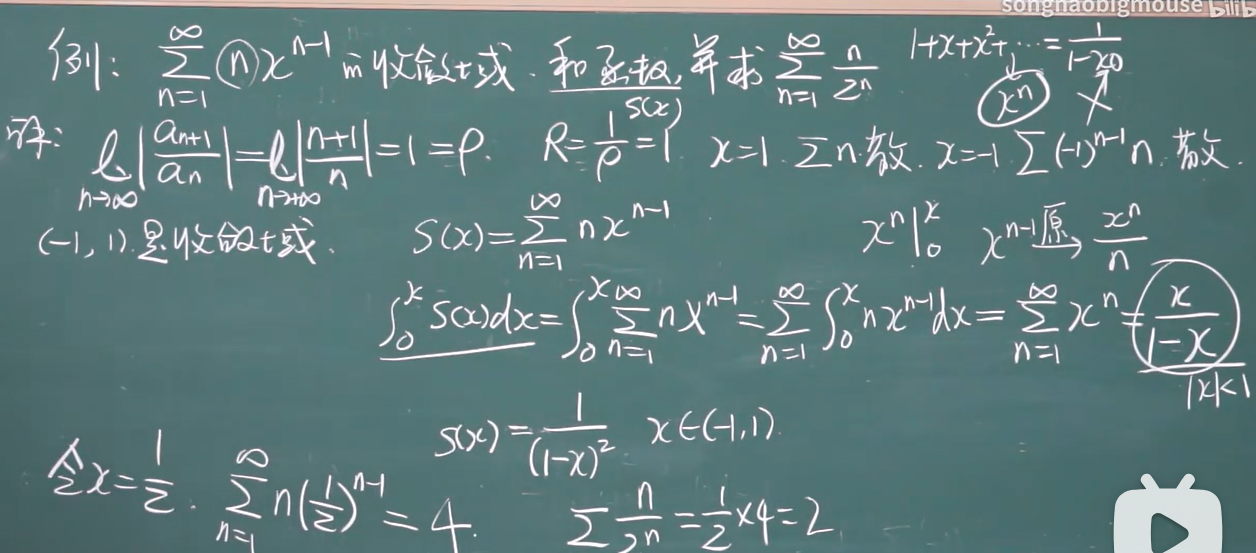 songhaobigmouse bilib
例: $\sum_{n=1}^{\infty} n x^{n-1}$ 的收敛域. 和函数, 并求 $\sum_{n=1}^{\infty} \frac{n}{2^n}$ $1+x+x^2+\cdots=\frac{1}{1-x}$
S(x) $x^n$
解: $\lim_{n\to\infty}\left|\frac{a_{n+1}}{a_n}\right|=\lim_{n\to+\infty}\left|\frac{n+1}{n}\right|=1=\rho.$ $R=\frac{1}{\rho}=1$ $x=1.$ $\sum n.$ 散. $x=-1.$ $\sum(-1)^{n-1}n.$ 散.
(-1, 1). 是收敛域. $S(x)=\sum_{n=1}^{\infty} n x^{n-1}$ $x^n|_0^x$ $x^{n-1}$ 原→ $\frac{x^n}{n}$
$\int_0^x S(x)dx=\int_0^x\sum_{n=1}^{\infty} n x^{n-1}=\sum_{n=1}^{\infty}\int_0^x n x^{n-1}dx=\sum_{n=1}^{\infty} x^n=\frac{x}{1-x}$
|x|<1
$S(x)=\frac{1}{(1-x)^2}$ $x\in(-1,1).$
令 $x=\frac{1}{2}.$ $\sum_{n=1}^{\infty} n(\frac{1}{2})^{n-1}=4.$ $\sum\frac{n}{2^n}=\frac{1}{2}\times4=2$